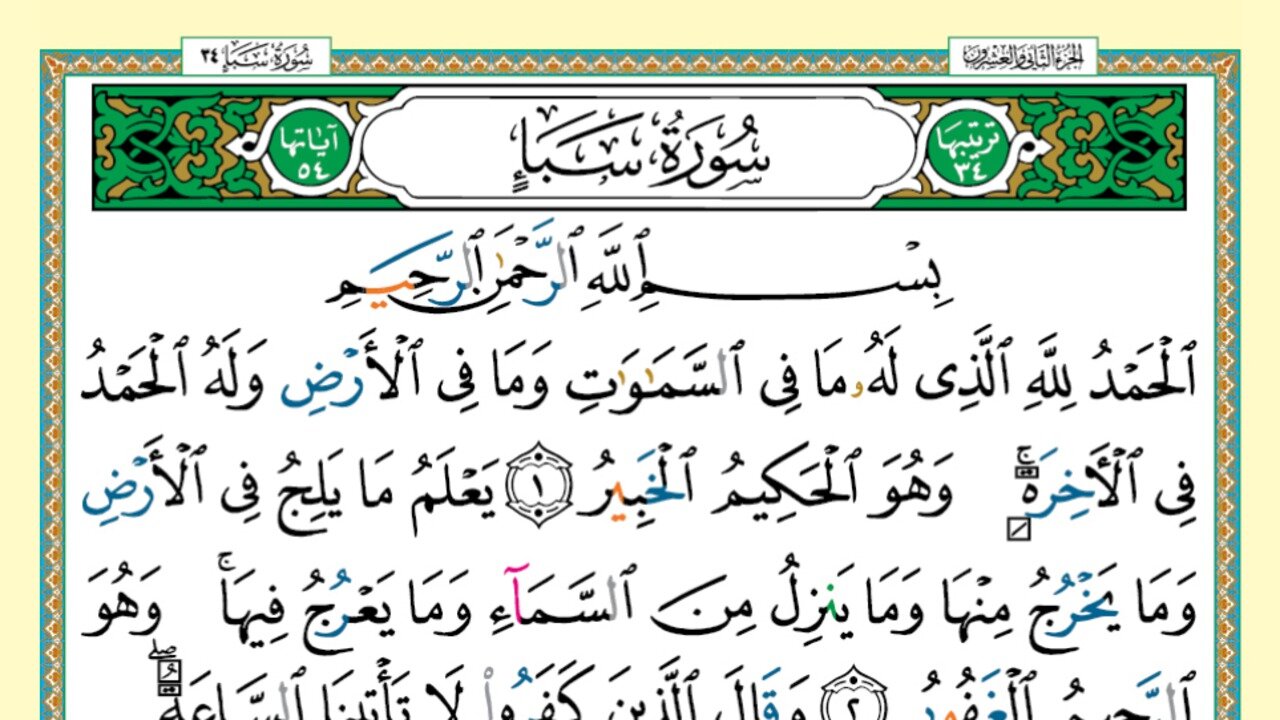 الجزء الثاني والعشرون
سُورَةُ سَبَإٍ ٣٤
ترتيبها ٣٤
سُورَةُ سَبَإٍ
آياتها ٥٤
بِسْمِ ٱللَّهِ ٱلرَّحْمَٰنِ ٱلرَّحِيمِ
ٱلْحَمْدُ لِلَّهِ ٱلَّذِى لَهُۥ مَا فِى ٱلسَّمَٰوَٰتِ وَمَا فِى ٱلْأَرْضِ وَلَهُ ٱلْحَمْدُ
فِى ٱلْأَخِرَةِۚ وَهُوَ ٱلْحَكِيمُ ٱلْخَبِيرُ ١ يَعْلَمُ مَا يَلِجُ فِى ٱلْأَرْضِ
وَمَا يَخْرُجُ مِنْهَا وَمَا يَنزِلُ مِنَ ٱلسَّمَآءِ وَمَا يَعْرُجُ فِيهَاۚ وَهُوَ
ٱلرَّحِيمُ ٱلْغَفُورُ ٢ وَقَالَ ٱلَّذِينَ كَفَرُوا۟ لَا تَأْتِينَا ٱلسَّاعَةُۖ